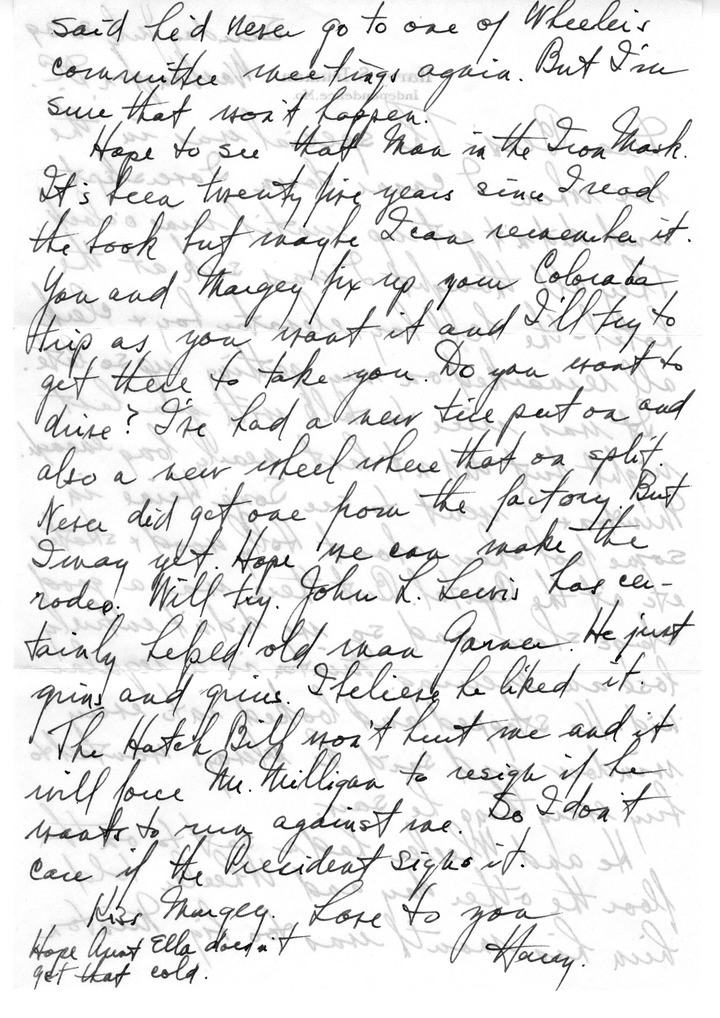 said he'd never go to one of Wheeler's
committee meetings again. But I'm
sure that won't happen.
Hope to see that Man in the Iron Mask.
It's been twenty five years since I read
the book but maybe I can remember it.
You and Margey fix up your Colorado
trip as you want it and I'll try to
get there to take you. Do you want to
drive? I've had a new tire put on and
also a new wheel where that on split.
Never did get one from the factory. But
I may yet. Hope we can make the
rodeo. Will try. John L. Lewis has cer-
tainly helped old man Garner. He just
grins and grins. I believe he liked it.
The Hatch Bill won't hurt me and it
will force Mr. Milligan to resign if he
wants to run against me. So I don't
care if the President signs it.
Kiss Margey. Love to you
Harry.
Hope Aunt Ella doesn't
get that cold.